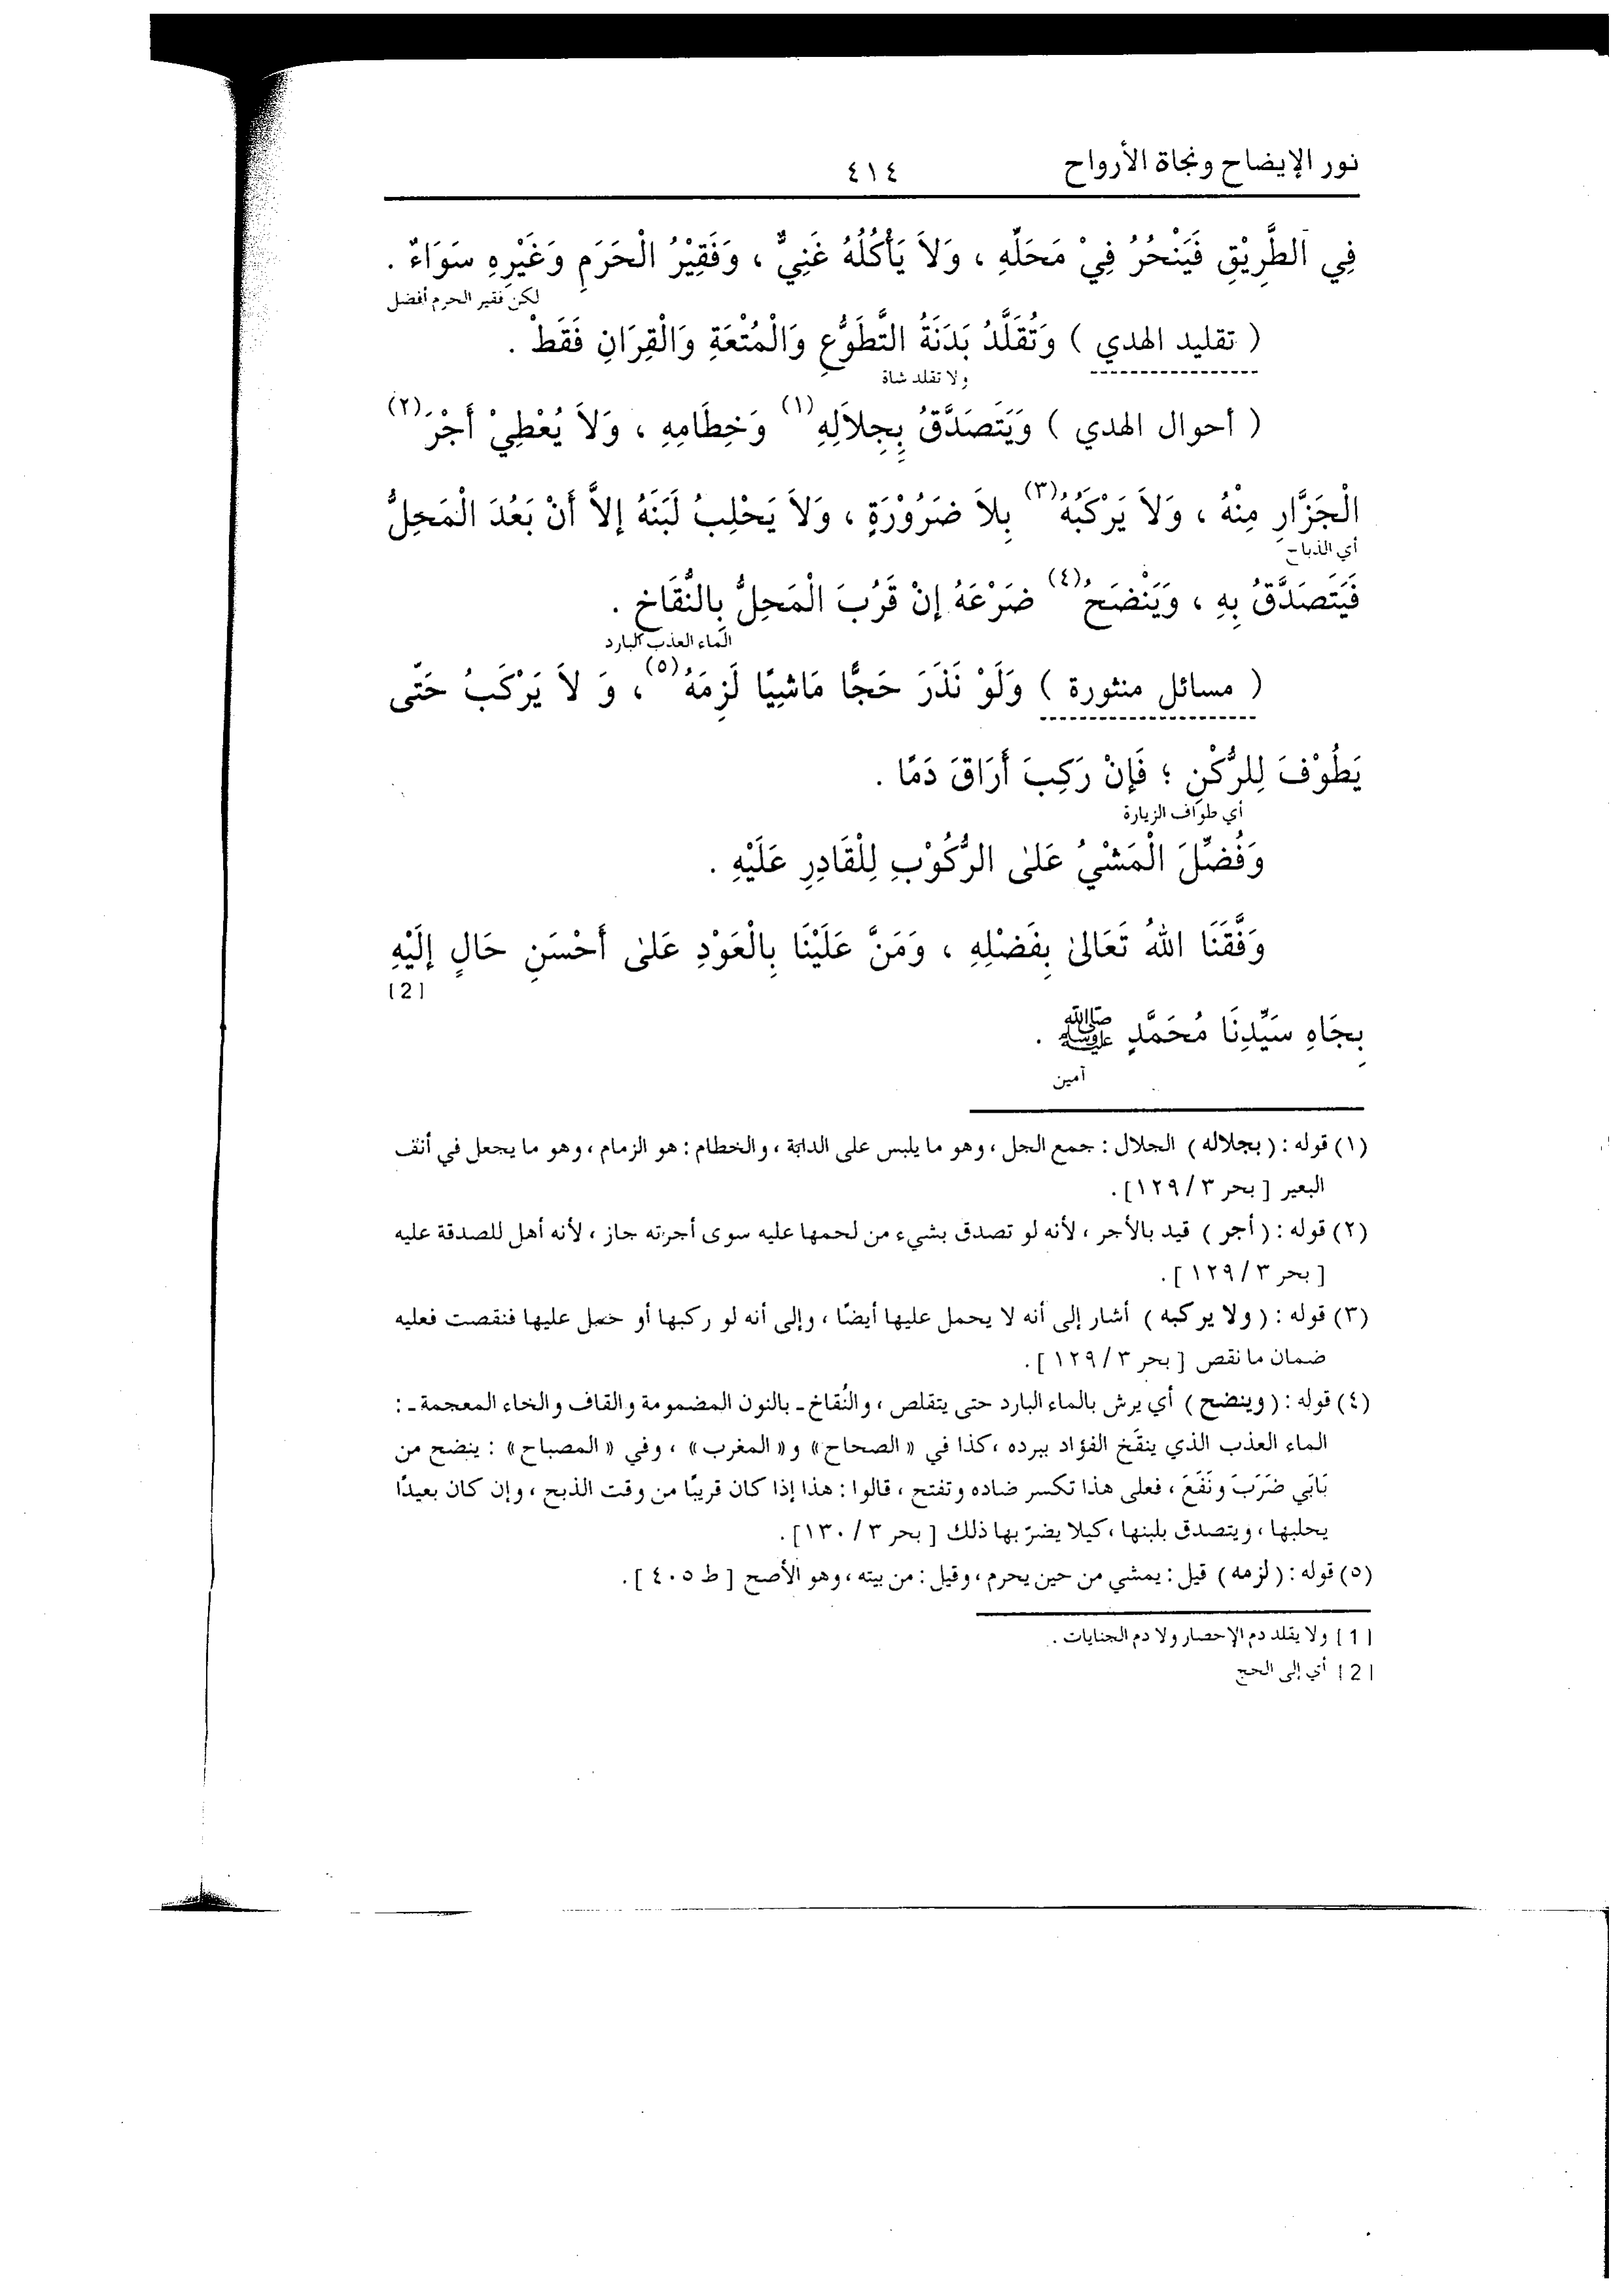 نور الإيضاح ونجاة الأرواح ٤١٤
فِي الطَّرِيْقِ فَيَنْحُرُ فِيْ مَحَلِّهِ ، وَلاَ يَأْكُلُهُ غَنِيٌّ ، وَفَقِيْرُ الْحَرَمِ وَغَيْرِهِ سَوَاءٌ .
لكن فقير الحرم أفضل
( تقليد الهدي ) وَتُقَلَّدُ بَدَنَةُ التَّطَوُّعِ وَالْمُتْعَةِ وَالْقِرَانِ فَقَطْ .
ولا تقلد شاة
( أحوال الهدي ) وَيَتَصَدَّقُ بِجِلاَلِهِ(١) وَخِطَامِهِ ، وَلاَ يُعْطِيْ أَجْرَ(٢)
الْجَزَّارِ مِنْهُ ، وَلاَ يَرْكَبُهُ(٣) بِلاَ ضَرُوْرَةٍ ، وَلاَ يَحْلِبُ لَبَنَهُ إلاَّ أَنْ بَعُدَ الْمَحِلُّ
أي الذباح
فَيَتَصَدَّقُ بِهِ ، وَيَنْضَحُ(٤) ضَرْعَهُ إنْ قَرُبَ الْمَحِلُّ بِالنُّقَاخِ .
الماء العذب البارد
( مسائل منثورة ) وَلَوْ نَذَرَ حَجًّا مَاشِيًا لَزِمَهُ(٥) ، وَ لاَ يَرْكَبُ حَتّٰى
يَطُوْفَ لِلرُّكْنِ ؛ فَإنْ رَكِبَ أَرَاقَ دَمًا .
أي طواف الزيارة
وَفُضِّلَ الْمَشْيُ عَلىٰ الرُّكُوْبِ لِلْقَادِرِ عَلَيْهِ .
وَفَّقَنَا اللهُ تَعَالىٰ بِفَضْلِهِ ، وَمَنَّ عَلَيْنَا بِالْعَوْدِ عَلىٰ أَحْسَنِ حَالٍ إلَيْهِ
[2]
بِجَاهِ سَيِّدِنَا مُحَمَّدٍ ﷺ .
آمين
(١) قوله : ( بجلاله ) الجلال : جمع الجل ، وهو ما يلبس على الدابة ، والخطام : هو الزمام ، وهو ما يجعل في أنف
البعير [ بحر ٣/ ١٢٩] .
(٢) قوله : ( أجر ) قيد بالأجر ، لأنه لو تصدق بشيء من لحمها عليه سوى أجرته جاز ، لأنه أهل للصدقة عليه
[ بحر ٣/ ١٢٩ ] .
(٣) قوله : ( ولا يركبه ) أشار إلى أنه لا يحمل عليها أيضًا ، وإلى أنه لو ركبها أو حمل عليها فنقصت فعليه
ضمان ما نقص [ بحر ٣/ ١٢٩ ] .
(٤) قوله : ( وينضح ) أي يرش بالماء البارد حتى يتقلص ، والنُقاخ ـ بالنون المضمومة والقاف والخاء المعجمة ـ :
الماء العذب الذي ينقَخ الفؤاد ببرده ، كذا في « الصحاح» و« المغرب» ، وفي « المصباح» : ينضح من
بَابَي ضَرَبَ ونَفَعَ ، فعلى هذا تكسر ضاده وتفتح ، قالوا : هذا إذا كان قريبًا من وقت الذبح ، وإن كان بعيدًا
يحلبها ، ويتصدق بلبنها ، كيلا يضرّ بها ذلك [ بحر ٣/ ١٣٠] .
(٥) قوله : ( لزمه ) قيل : يمشي من حين يحرم ، وقيل : من بيته ، وهو الأصح [ ط ٤٠٥ ] .
[1] ولا يقلد دم الإحصار ولا دم الجنايات .
[2] أي إلى الحج